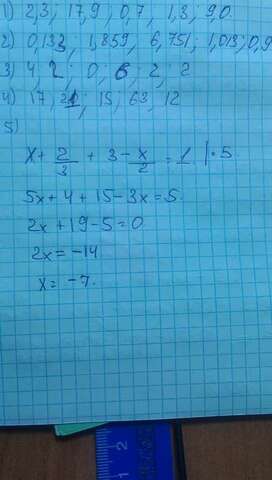 1) 2,3; 17,9; 0,7; 1,3; 9,0.
2) 0,133; 1,859; 6,751; 1,013; 0,9
3) 4, 2; 0; 6; 2; 2
4) 17, 21; 15; 63; 12
5)
x + 2/3 + 3 - x/2 = 1 | · 5
5x + 4 + 15 - 3x = 5
2x + 19 - 5 = 0
2x = -14
x = -7.
1 2